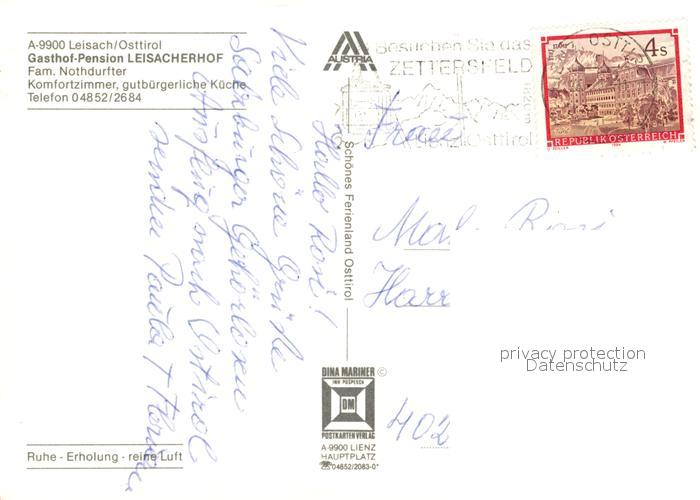 A-9900 Leisach/Osttirol
Gasthof-Pension LEISACHERHOF
Fam. Nothdurfter
Komfortzimmer, gutbürgerliche Küche
Telefon 04852/2684
Hallo Rosi!
Viele Schöne Grüße
Salzburger Gehörlosen
Ausflug nach Osttirol
senden Paula + Florian
Ruhe - Erholung - reine Luft
Schönes Ferienland Osttirol
AUSTRIA
Besuchen Sie das
ZETTERSFELD
Osttirol
4 s
REPUBLIK ÖSTERREICH
Frau
Rosi
Harr
402
privacy protection
Datenschutz
DINA MARINER ©
INH POSPESCH
DM
POSTKARTENVERLAG
A-9900 LIENZ
HAUPTPLATZ
04852/2083-0*